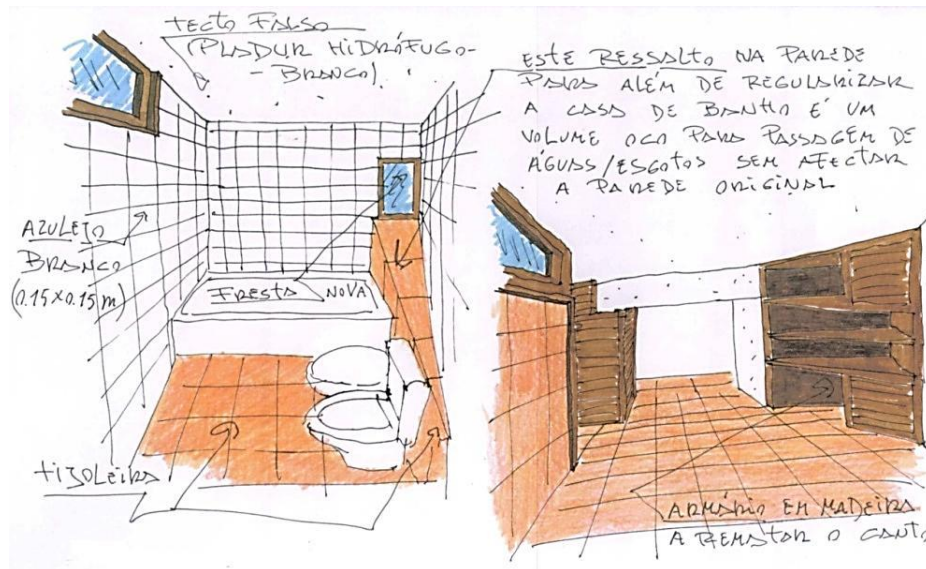 TECTO FALSO
(PLADUR HIDRÓFUGO-
-BRANCO)
ESTE RESSALTO NA PAREDE
PARA ALÉM DE REGULARIZAR
A CASA DE BANHO É UM
VOLUME OCO PARA PASSAGEM DE
ÁGUAS/ESGOTOS SEM AFECTAR
A PAREDE ORIGINAL
AZULEJO
BRANCO
(0.15x0.15 m)
FRESTA NOVA
TIJOLEIRA
ARMÁRIO EM MADEIRA
A REMATAR O CANTO